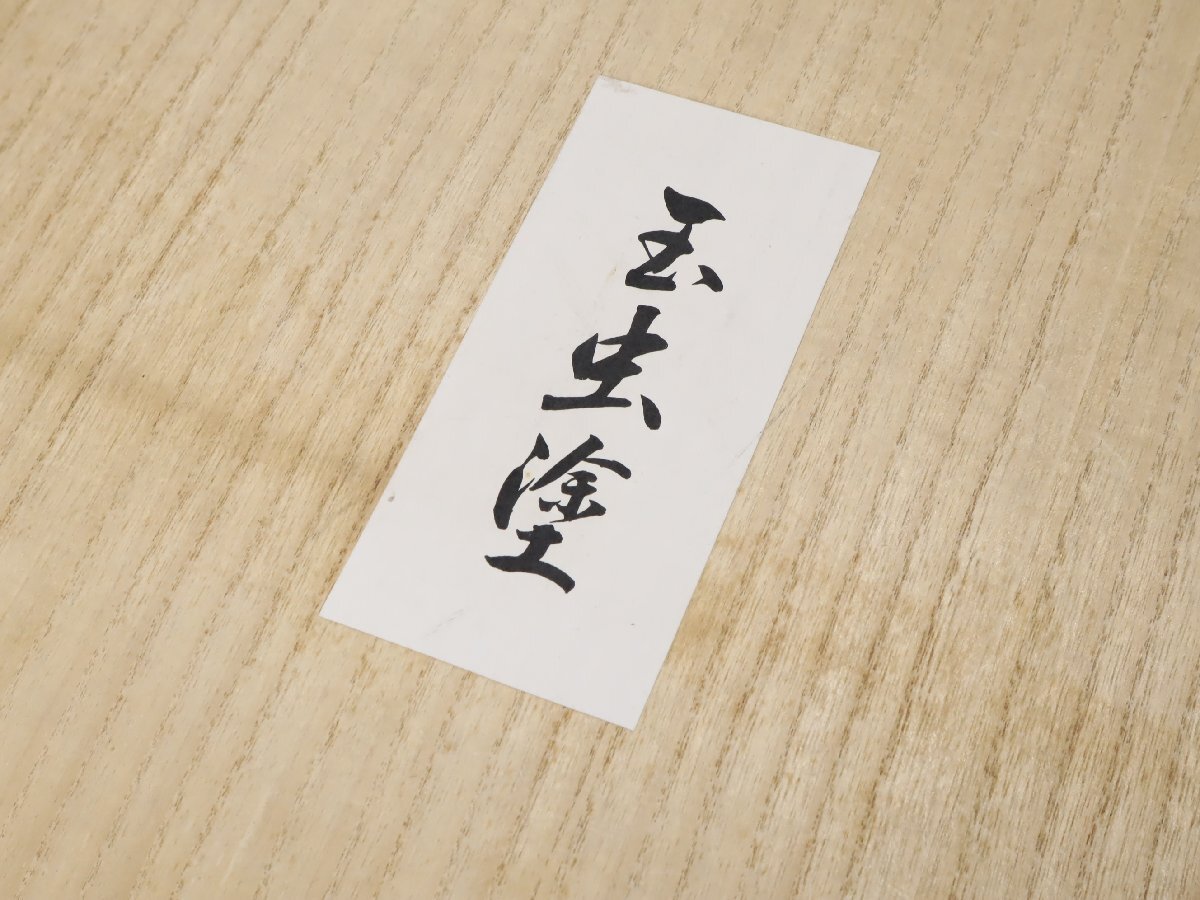 玉虫塗